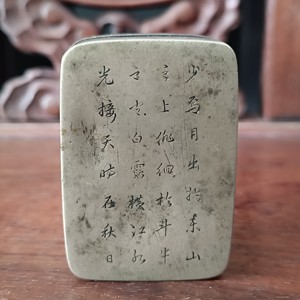 少焉月出於東山
之上徘徊於斗牛
之間白露橫江水
光接天時在秋日